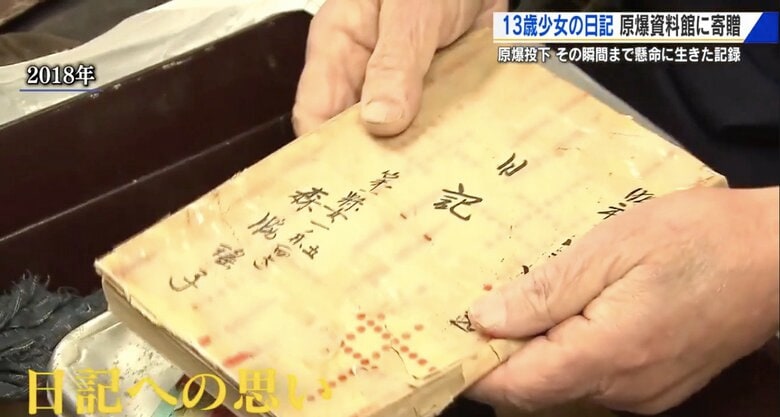 13歳少女の日記 原爆資料館に寄贈
原爆投下 その瞬間まで懸命に生きた記録
2018年
日記
第一県女一年六
森脇瑤子
日記への思い